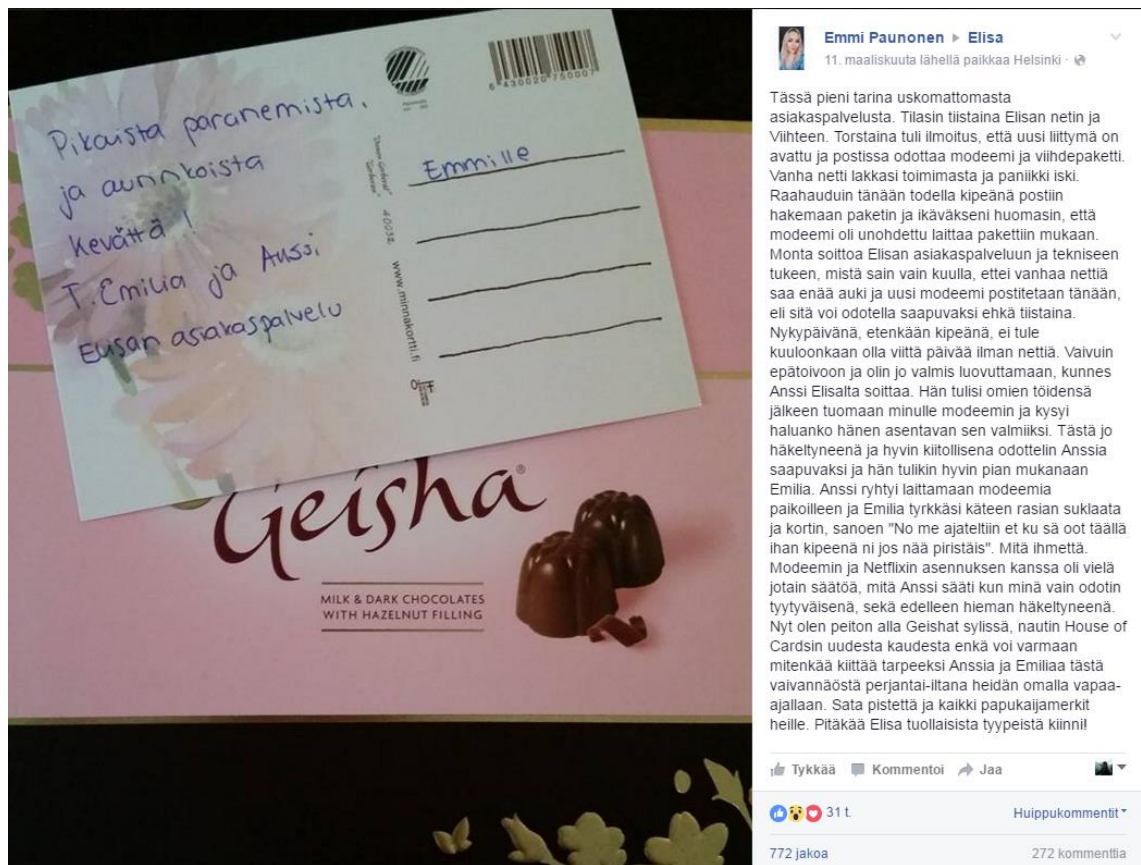 Pikaista paranemista,
ja aurinkoista
kevättä!
T. Emilia ja Anssi
Elisan asiakaspalvelu
6 430020 750007
Emmille
40032
www.minnakortti.fi
Geisha®
MILK & DARK CHOCOLATES
WITH HAZELNUT FILLING
Emmi Paunonen ▸ Elisa
11. maaliskuuta lähellä paikkaa Helsinki ·
Tässä pieni tarina uskomattomasta
asiakaspalvelusta. Tilasin tiistaina Elisan netin ja
Viihteen. Torstaina tuli ilmoitus, että uusi liittymä on
avattu ja postissa odottaa modeemi ja viihdepaketti.
Vanha netti lakkasi toimimasta ja paniikki iski.
Raahauduin tänään todella kipeänä postiin
hakemaan paketin ja ikäväkseni huomasin, että
modeemi oli unohdettu laittaa pakettiin mukaan.
Monta soittoa Elisan asiakaspalveluun ja tekniseen
tukeen, mistä sain vain kuulla, ettei vanhaa nettiä
saa enää auki ja uusi modeemi postitetaan tänään,
eli sitä voi odotella saapuvaksi ehkä tiistaina.
Nykypäivänä, etenkään kipeänä, ei tule
kuuloonkaan olla viittä päivää ilman nettiä. Vaivuin
epätoivoon ja olin jo valmis luovuttamaan, kunnes
Anssi Elisalta soittaa. Hän tulisi omien töidensä
jälkeen tuomaan minulle modeemin ja kysyi
haluanko hänen asentavan sen valmiiksi. Tästä jo
häkeltyneenä ja hyvin kiitollisena odottelin Anssia
saapuvaksi ja hän tulikin hyvin pian mukanaan
Emilia. Anssi ryhtyi laittamaan modeemia
paikoilleen ja Emilia tyrkkäsi käteen rasian suklaata
ja kortin, sanoen "No me ajateltiin et ku sä oot täällä
ihan kipeenä ni jos nää piristäis". Mitä ihmettä.
Modeemin ja Netflixin asennuksen kanssa oli vielä
jotain säätöä, mitä Anssi sääti kun minä vain odotin
tyytyväisenä, sekä edelleen hieman häkeltyneenä.
Nyt olen peiton alla Geishat sylissä, nautin House of
Cardsin uudesta kaudesta enkä voi varmaan
mitenkää kiittää tarpeeksi Anssia ja Emiliaa tästä
vaivannäöstä perjantai-iltana heidän omalla vapaa-
ajallaan. Sata pistettä ja kaikki papukaijamerkit
heille. Pitäkää Elisa tuollaisista tyypeistä kiinni!
Tykkää Kommentoi Jaa
31 t. Huippukommentit
772 jakoa 272 kommenttia